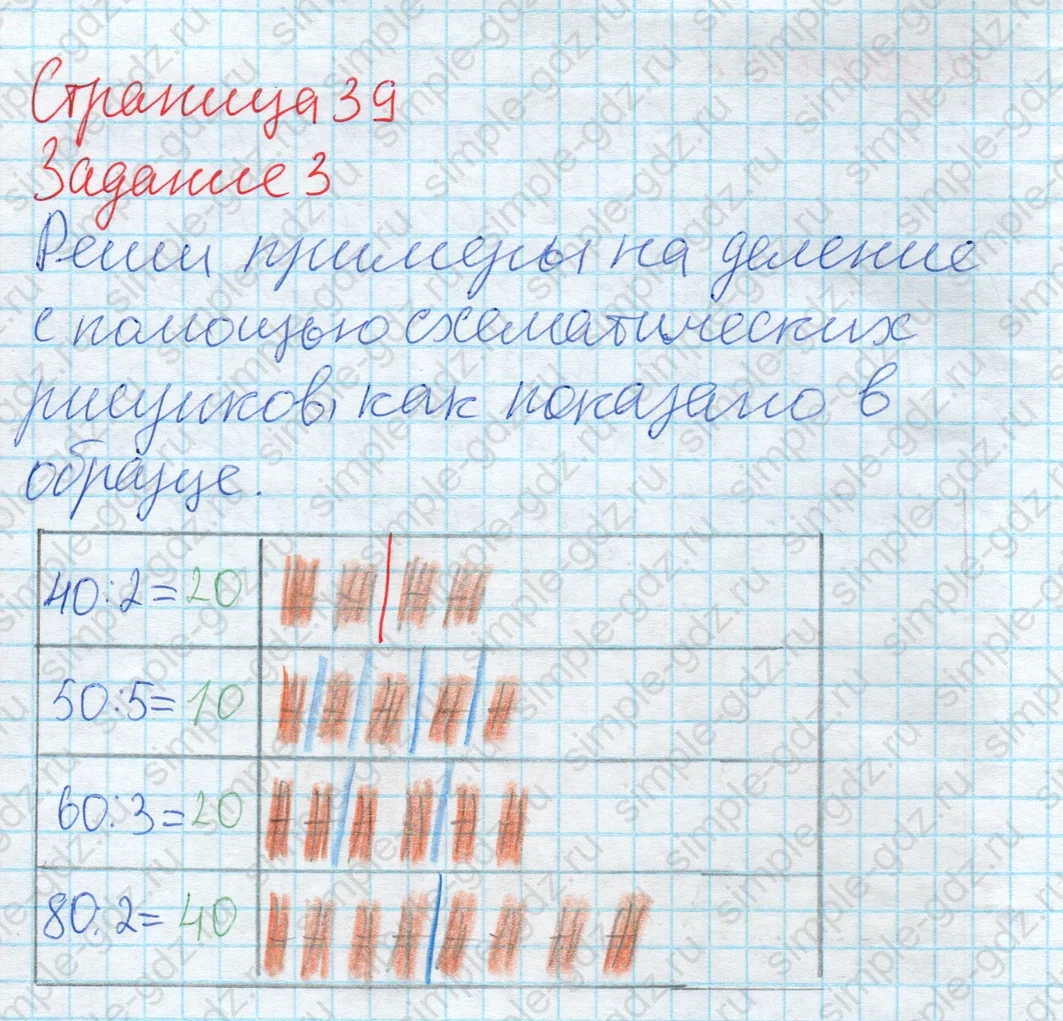 Страница 39
Задание 3
Реши примеры на деление
с помощью схематических
рисунков, как показано в
образце.
40:2=20
50:5=10
60:3=20
80:2=40
simple-gdz.ru